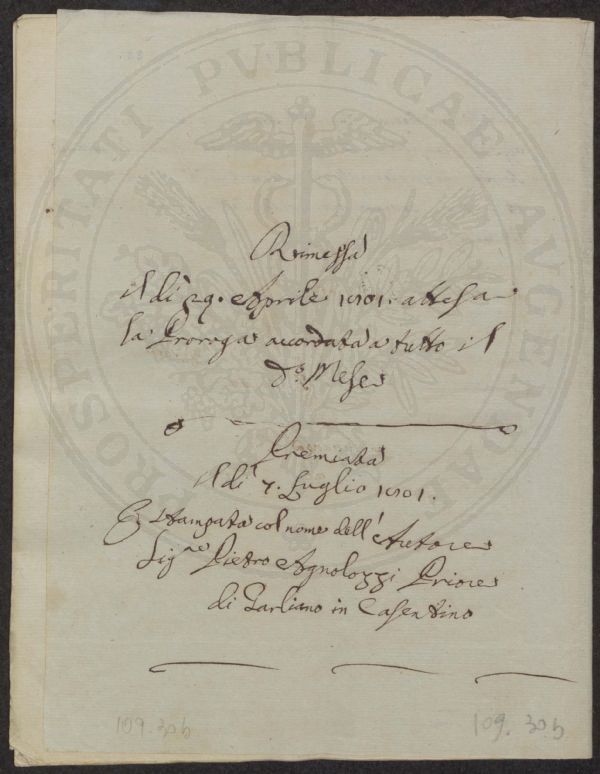 PROSPERITATI PVBLICAE AVGENDAE
Rimessa
il dì 29. Aprile 1801. attesa
la Proroga accordata a tutto il
dº. Mese
Premiata
il dì 7. Luglio 1801.
E stampata col nome dell' Autore
Sigre Pietro Agnolozzi Priore
di Garliano in Casentino
109. 305
109. 305